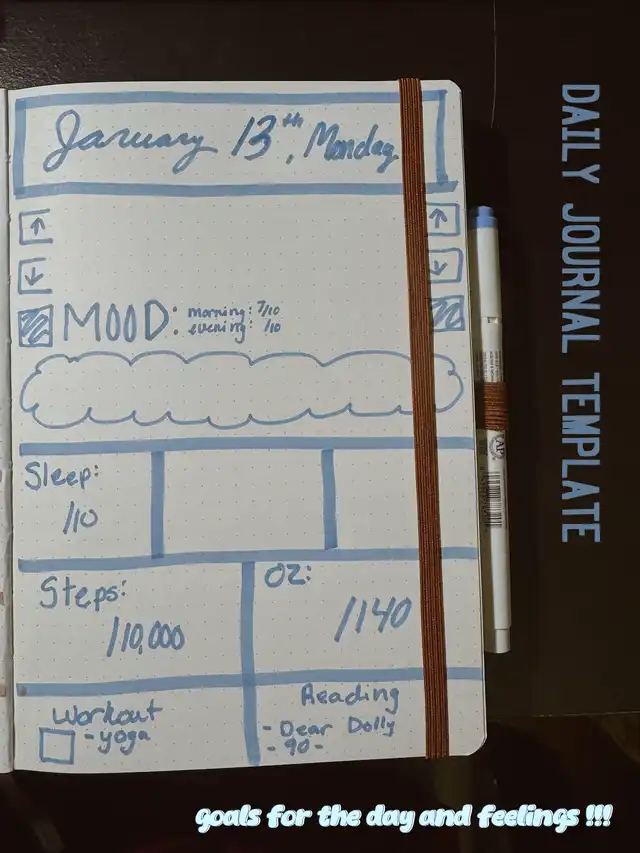 January 13th, Monday
MOOD: morning: 7/10
evening: /10
Sleep:
/10
Steps:
/10,000
OZ:
/140
Workout
- yoga
Reading
- Dear Dolly
- 90 -
DAILY JOURNAL TEMPLATE
AP
goals for the day and feelings !!!